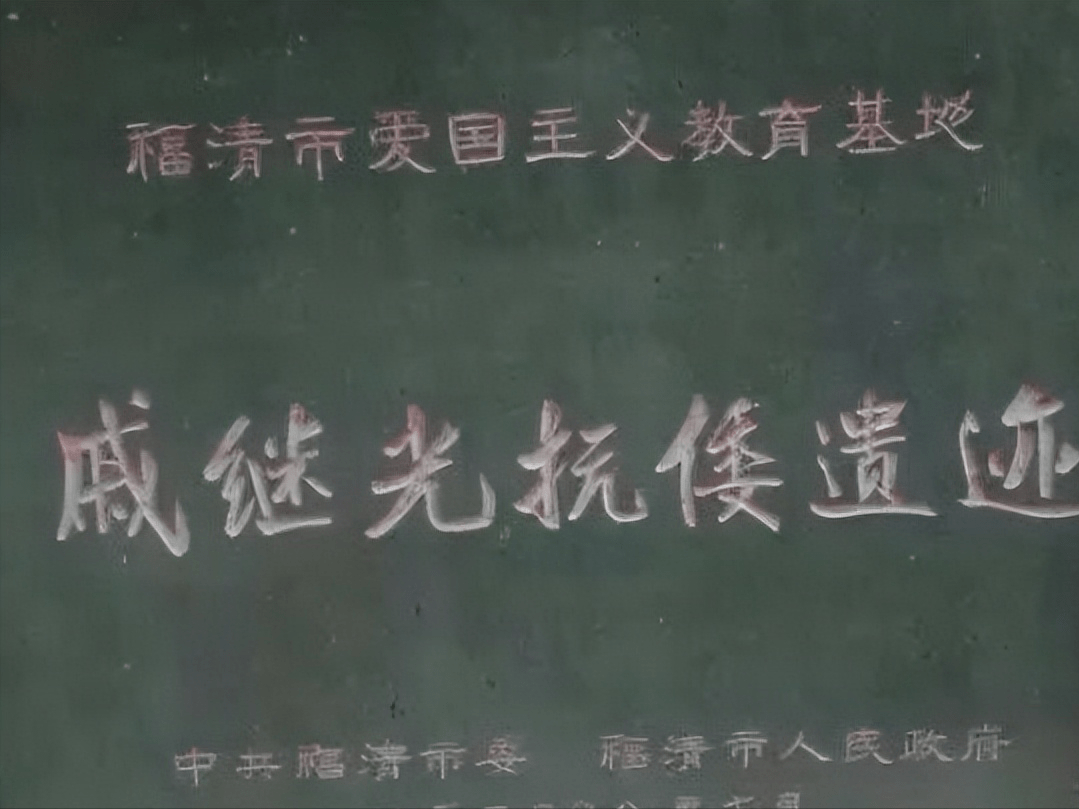 福清市爱国主义教育基地
戚继光抗倭遗迹
中共福清市委 福清市人民政府